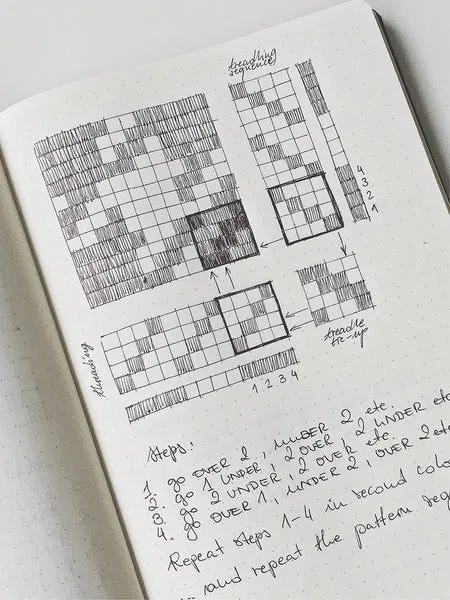 treadling
sequence
4
3
2
1
threading
1 2 3 4
treadle
tie-up
Steps:
1. go OVER 2, UNDER 2 etc.
2. go 1 UNDER, 2 OVER, 2 UNDER etc
3. go 2 UNDER, 2 OVER etc.
4. go OVER 1, UNDER 2, OVER 2 etc
Repeat steps 1-4 in second colo
and repeat the pattern seq